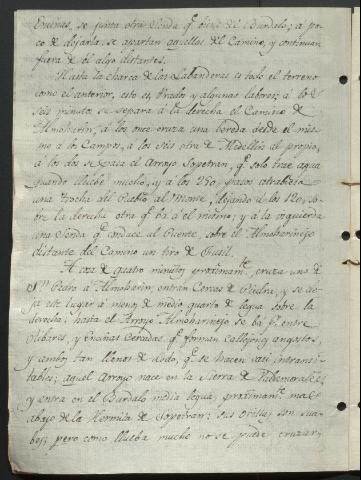 Encinas, se junta otra Senda qᵉ viene del Burdalo; a po-
co de dejarla, se apartan aquellas del Camino, y continuan
fuera de el algo distantes.
Hasta la charca de las Labanderas es todo el terreno
como el anterior, esto es, Prados y algunas labores; á los
seis minutos se separa á la derecha el Camino de
Almoharin, á los once cruza una Vereda desde el mis-
mo á los Campos, a los seis otra de Medellin al propio,
á los dos se pasa el Arroyo Sopetran, qᵉ solo trae agua
quando llueve mucho, y á los 250 pasos atrabiesa
una trocha del Pueblo al Monte, dejando á los 120, so-
bre la derecha otra qᵉ bá á el molino; y a la izquierda
una Senda qᵉ conduce al Puente, sobre el Almoharinejo
distante del Camino un tiro de fusil.
A cosa de quatro minutos proximamᵗᵉ, cruza uno de
Sⁿ Pedro a Almoharin, entran Cercas de Piedra, y se de-
ja este lugar á menos de medio quarto de legua sobre la
derecha; hasta el Arroyo Almoharinejo se bá pʳ entre
Olibares, y Encinas Cercadas, qᵉ forman Callejones angostos,
y ambos tan llenos de lodo, qᵉ se hacen casi intransi-
tables; aquel Arroyo nace en la Sierra de
y entra en el Burdalo media legua, proximamᵗᵉ mas
abajo de la Hermita de Sopetran; sus orillas son sua-
bes; pero como llueba mucho no se puede cruzar,